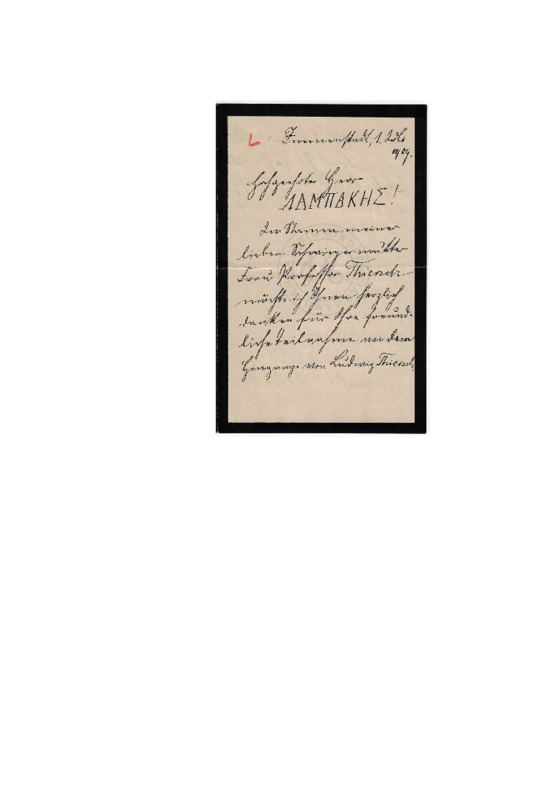 L Immenstadt, 1. Juli
1909.
Hochgeehrter Herr
ΛΑΜΠΑΚΗΣ!
Im Namen meiner
lieben Schwiegermutter
Frau Professor Thiersch
möchte ich Ihnen herzlich
danken für Ihre freund-
liche Teilnahme an dem
Hingange von Ludwig Thiersch